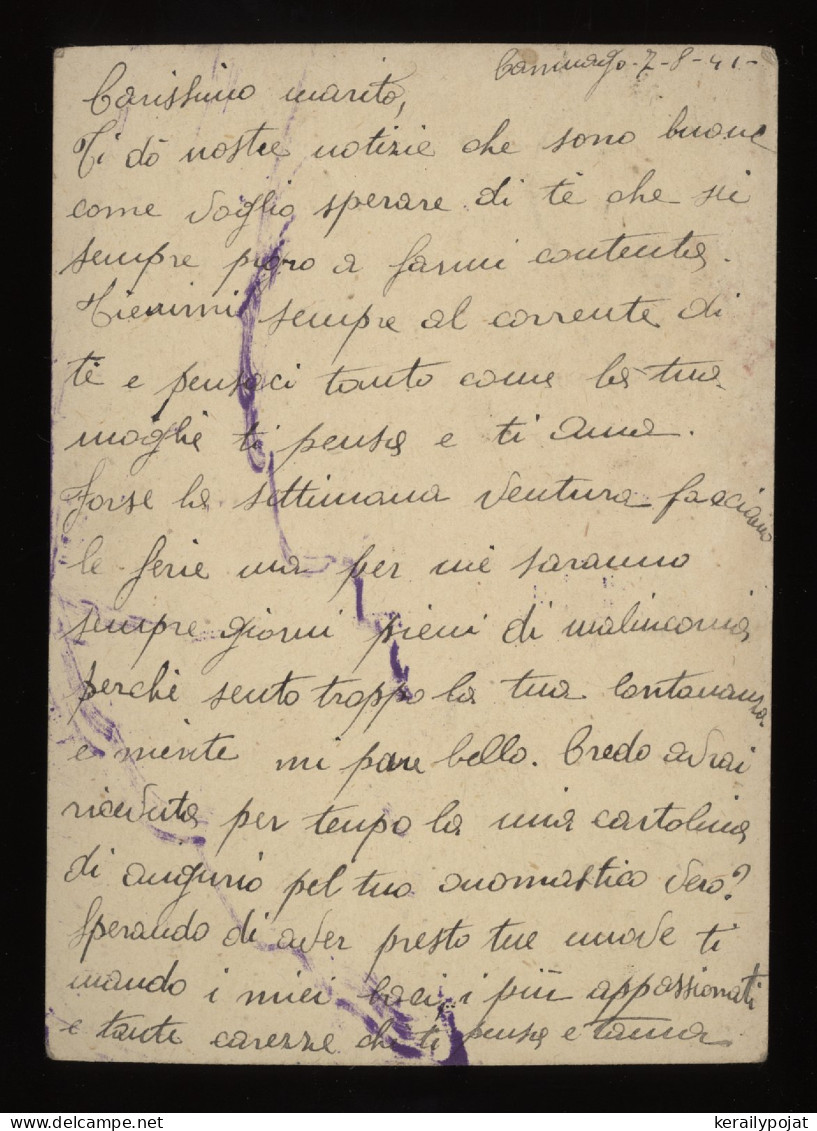 7-8-41-
Carissimo marito,
Ti dò nostre notizie che sono buone
come voglio sperare di tè che sii
sempre pigro a farmi contenta.
Tienimi sempre al corrente di
tè e pensaci tanto come la tua
moglie ti pensa e ti ama.
Forse la settimana ventura facciamo
le ferie ma per mè saranno
sempre giorni pieni di malinconia
perchè sento troppo la tua lontananza
e niente mi pare bello. Credo avrai
ricevuta per tempo la mia cartolina
di augurio pel tuo onomastico vero?
Sperando di aver presto tue nuove ti
mando i miei baci, i più appassionati
e tante carezze chi ti pensa e t'ama
kerailypojat